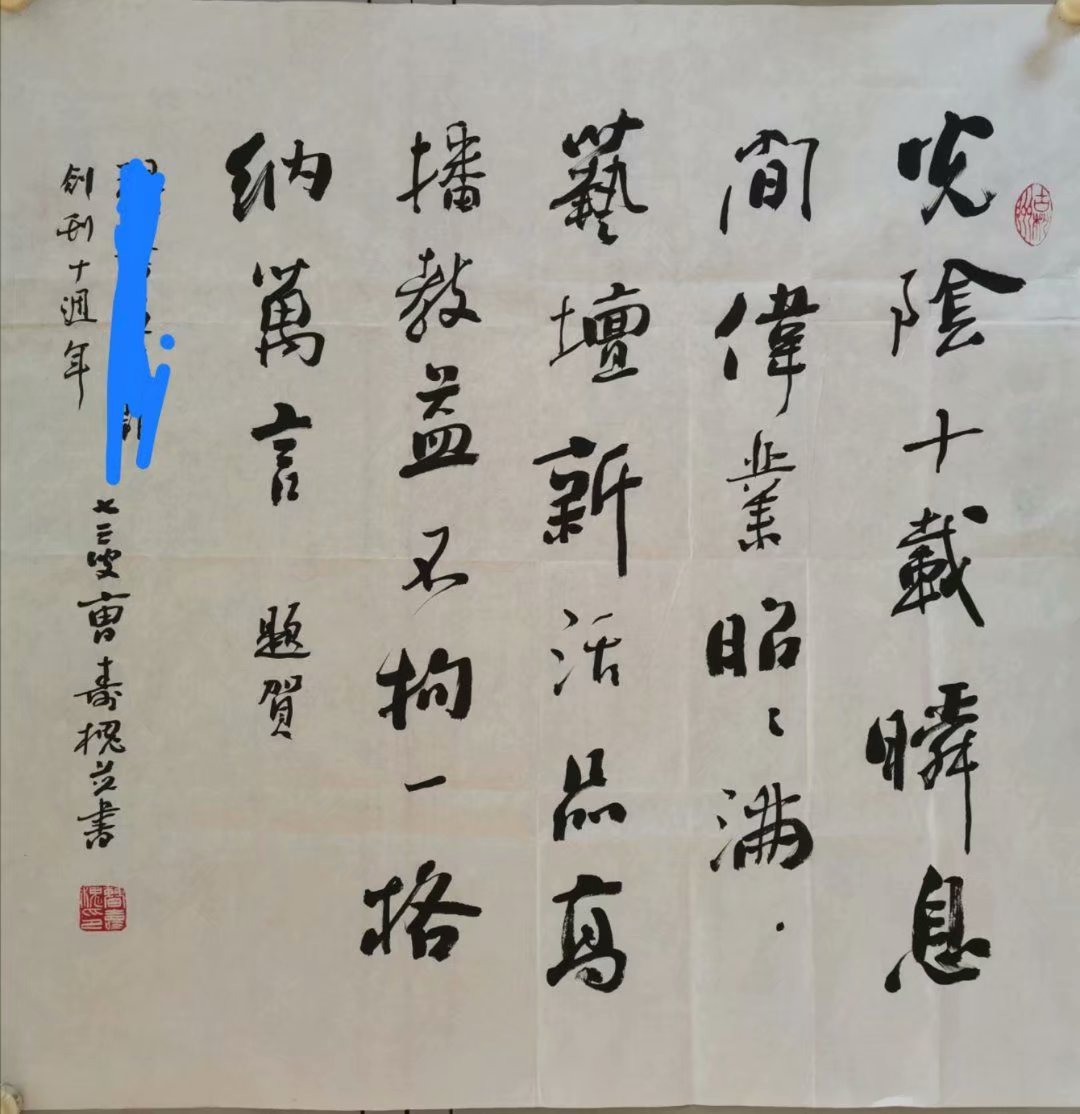 光陰十載瞬息
間偉業昭々满
藝壇新活品高
播教益不拘一格
纳萬言 題賀
創刊十週年
七三叟曹壽槐並書
曹壽槐印